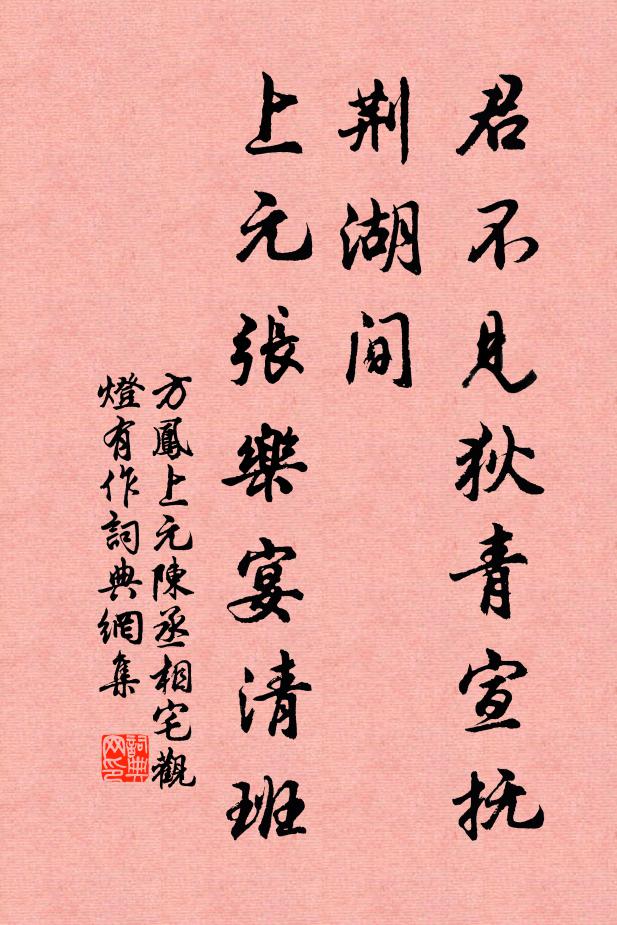 君不見狄青宣抚
荆湖間
上元張樂宴清班
方鳳上元陳丞相宅觀
燈有作詞典網集
詞典
网印